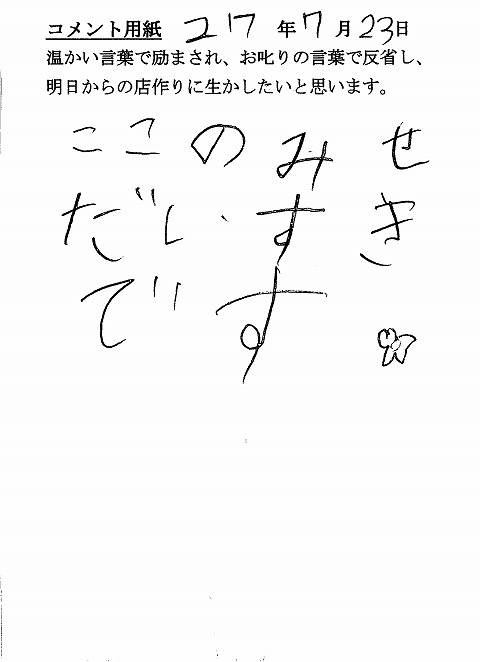 コメント用紙 217 年 7 月 23 日
温かい言葉で励まされ、お叱りの言葉で反省し、
明日からの店作りに生かしたいと思います。
ここのみせ
だいすき
です